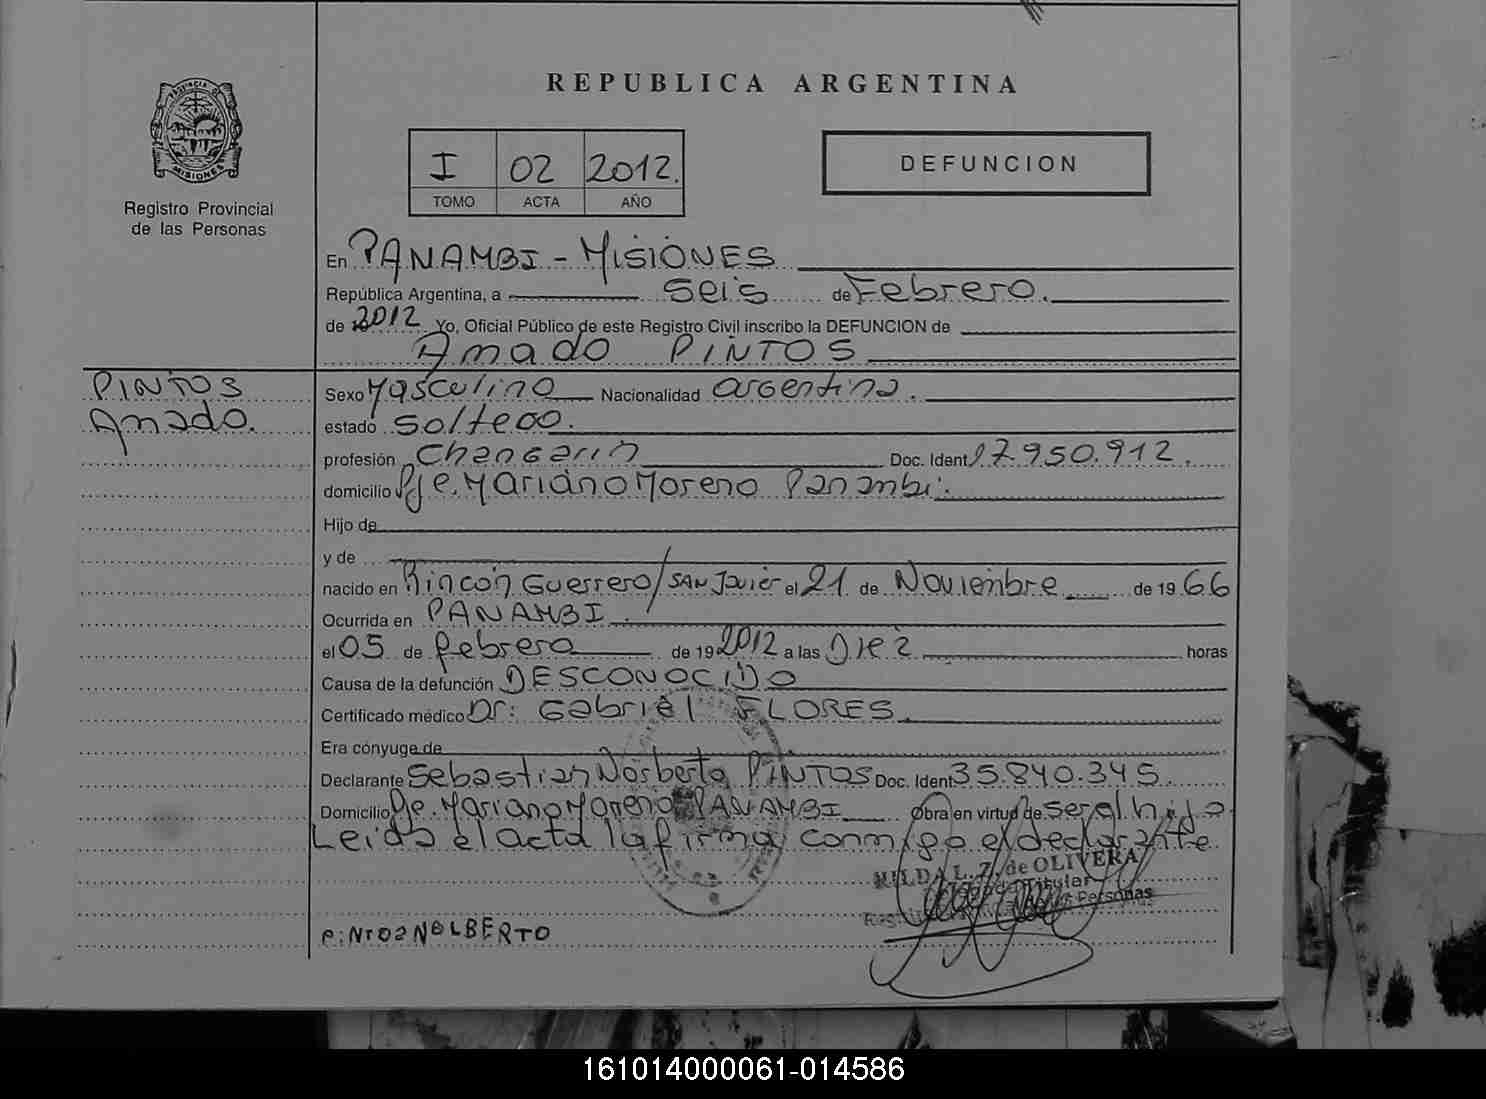 REPUBLICA ARGENTINA
PROVINCIA DE
MISIONES
Registro Provincial
de las Personas
I 02 2012.
TOMO ACTA AÑO
DEFUNCION
En PANAMBI - MISIONES
República Argentina, a seis de Febrero.
de 2012 Yo, Oficial Público de este Registro Civil inscribo la DEFUNCION de
Amado PINTOS
PINTOS
Amado.
Sexo Masculino Nacionalidad argentina.
estado solteoo.
profesión Changarin Doc. Ident 17.950.912.
domicilio Pje. Mariano Moreno Panambi.
Hijo de
y de
nacido en Rincón Guerrero/SAN Javier el 21 de Noviembre de 19 66
Ocurrida en PANAMBI.
el 05 de febrero de 19 2012 a las Diez horas
Causa de la defunción DESCONOCIDO
Certificado médico Dr: Gabriel FLORES.
Era cónyuge de
Declarante Sebastian Norberto PINTOS Doc. Ident 35.840.345.
Domicilio Pje. Mariano Moreno PANAMBI Obra en virtud de ser el hijo.
Leida el acta la firma conmigo el declarante.
HILDA L. Z. de OLIVERA
Titular
Personas
PiNTOS NOLBERTO
161014000061-014586